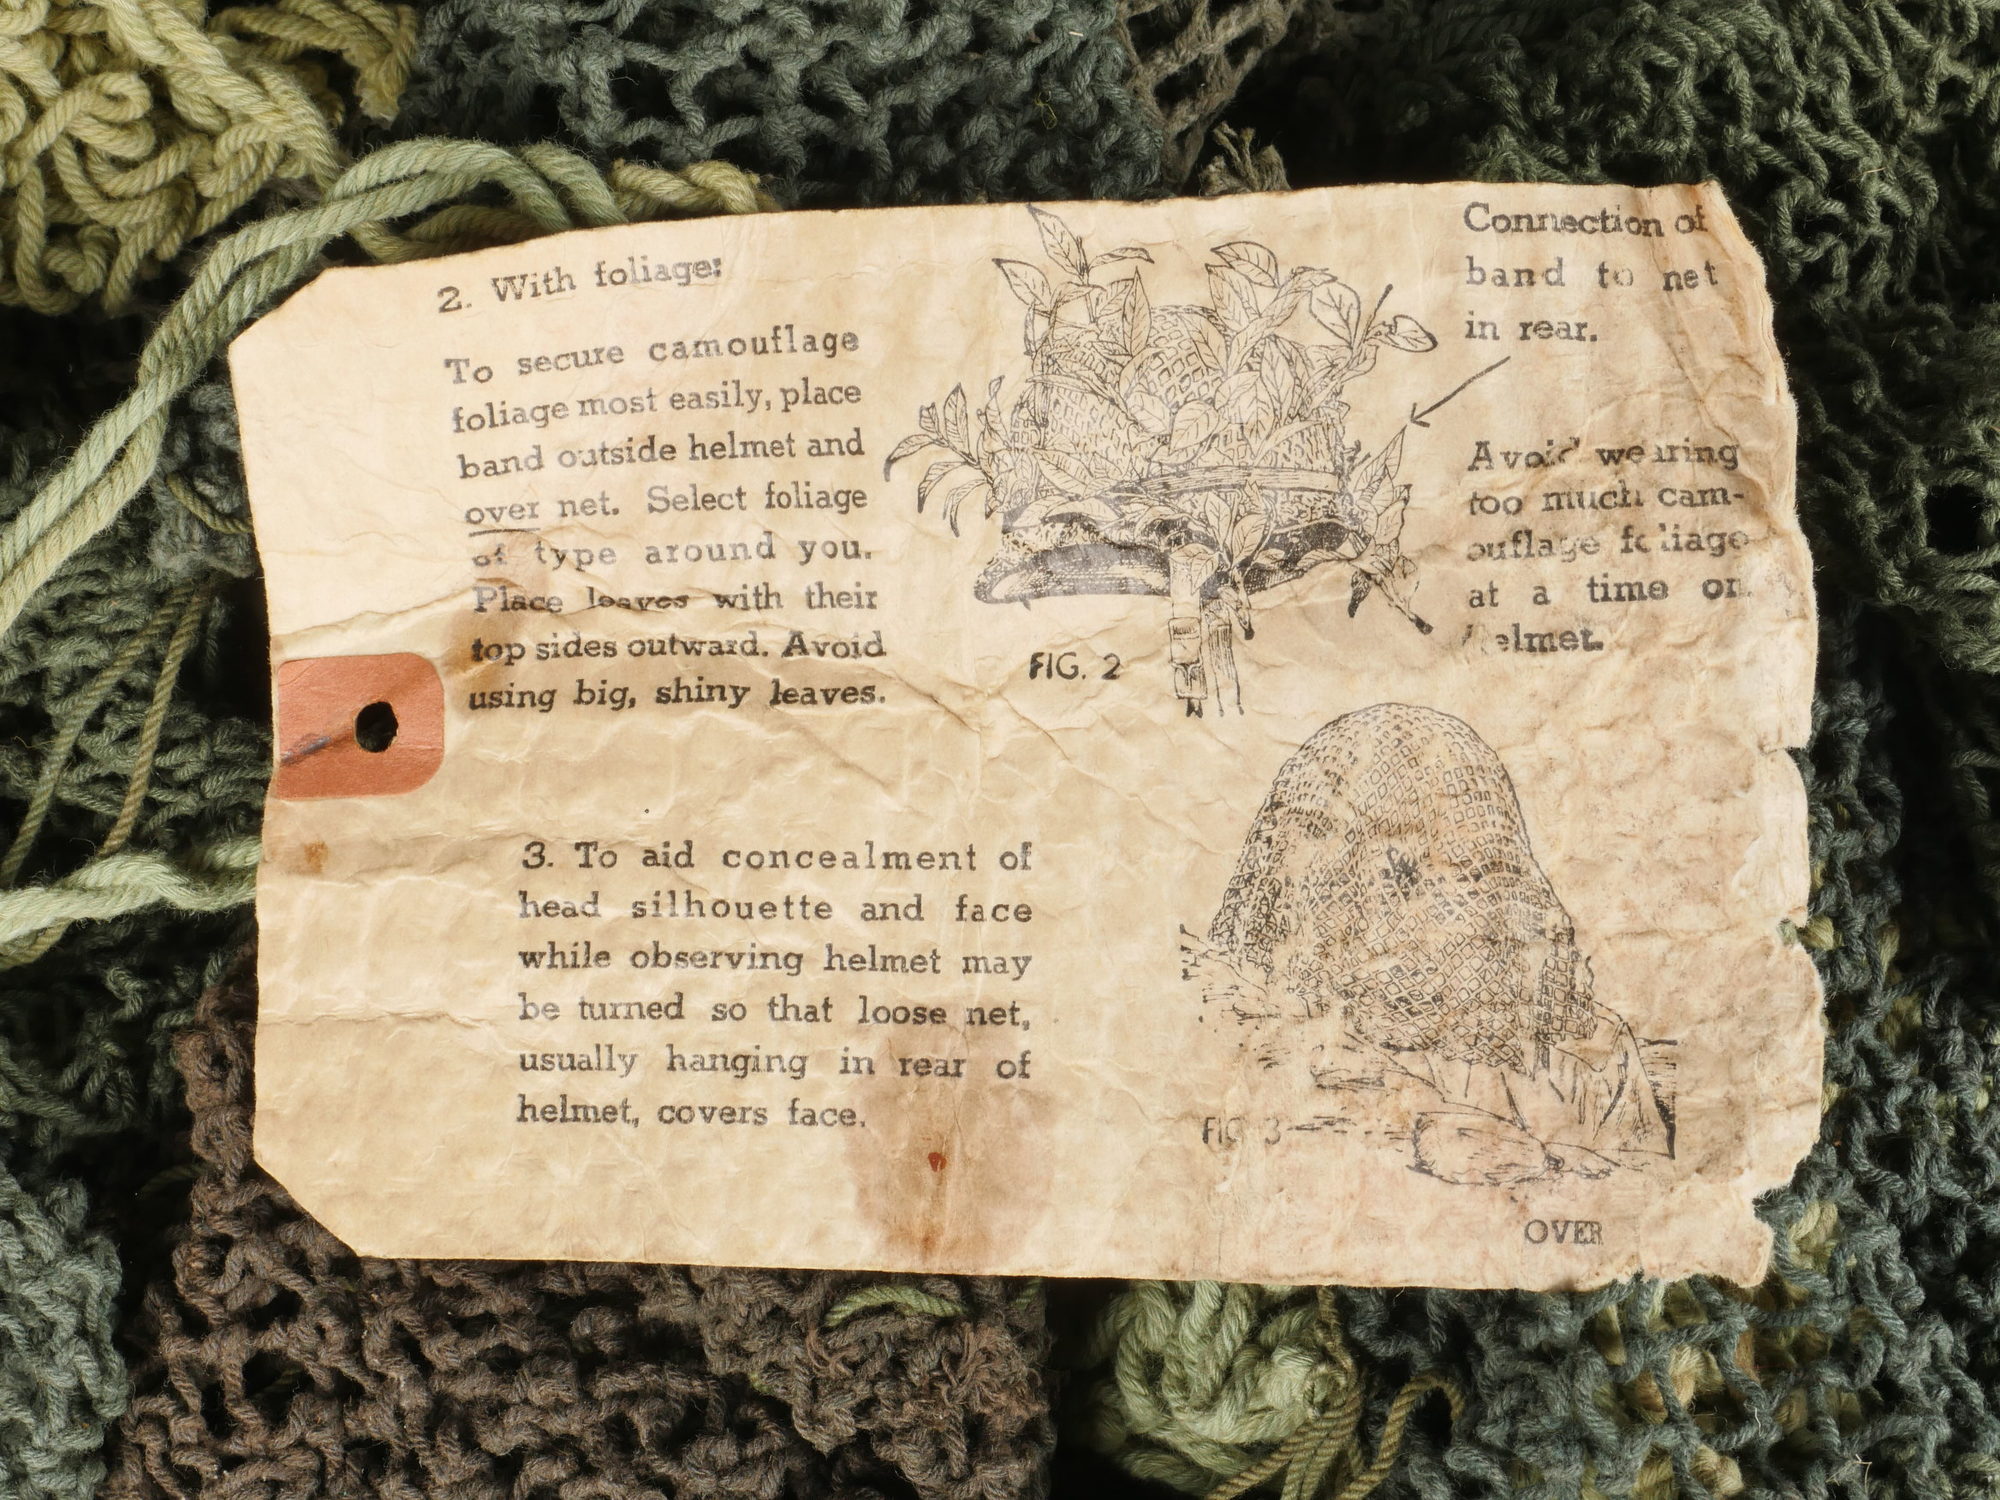 2. With foliage:
To secure camouflage
foliage most easily, place
band outside helmet and
over net. Select foliage
of type around you.
Place leaves with their
top sides outward. Avoid
using big, shiny leaves.
FIG. 2
Connection of
band to net
in rear.
Avoid wearing
too much cam-
ouflage foliage
at a time on
helmet.
3. To aid concealment of
head silhouette and face
while observing helmet may
be turned so that loose net,
usually hanging in rear of
helmet, covers face.
FIG. 3
OVER